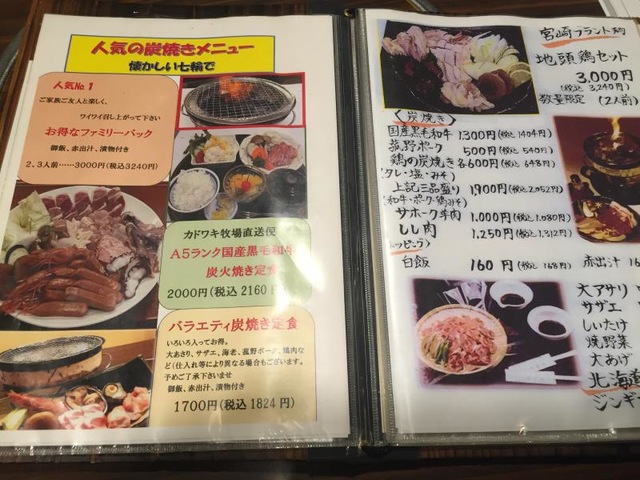 人気の炭焼きメニュー
懐かしい七輪で
人気No.1
ご家族ご友人と楽しく、
ワイワイ召し上がって下さい
お得なファミリーパック
御飯、赤出汁、漬物付き
2、3人前……3000円(税込3240円)
カドワキ牧場直送便
A5ランク国産黒毛和牛
炭火焼き定食
2000円(税込2160円)
バラエティ炭焼き定食
いろいろ入ってお得。
大あさり、サザエ、海老、菰野ポーク、鶏肉な
ど(仕入れ等により異なる場合もございます。
予めご了承下さいませ
御飯、赤出汁、漬物付き
1700円(税込1824円)
宮崎ブランド
地頭鶏セット
3,000円
(税込3,240円)
数量限定 (2人前)
〈炭焼き〉
国産黒毛和牛 1,300円(税込1404円)
菰野ポーク 500円(税込540円)
鶏の炭焼き各600円(税込648円)
(タレ・塩・みそ)
上記三品盛り 1,900円(税込2,052円)
(和牛・ポーク・鶏みそ)
サホーク羊肉 1,000円(税込1,080円)
しし肉 1,250円(税込1,312円)
白飯 160円(税込168円) 赤出汁 16
大アサリ
サザエ
しいたけ
焼野菜
大あげ
北海
ジンギ